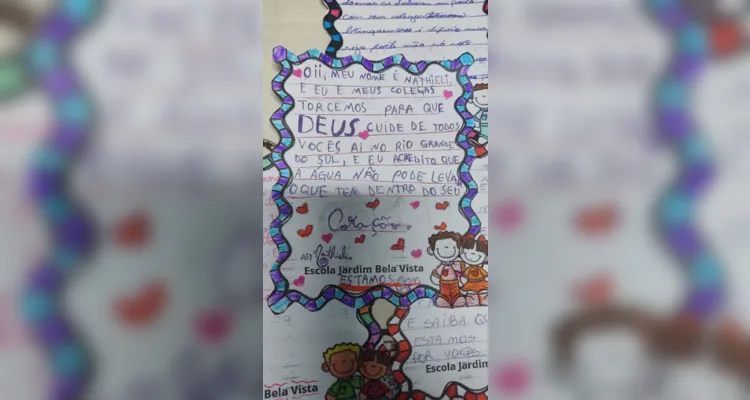 com seus colegas
brinquedos é difícil mas
Oii, MEU NOME É NATHIELI,
E EU E MEUS COLEGAS
TORCEMOS PARA QUE
DEUS CUIDE DE TODOS
VOCÊS AI NO RIO GRANDE
DO SUL, E EU ACREDITO QUE
A ÁGUA NÃO PODE LEVAR
O QUE TEM DENTRO DO SEU
Coração.
ass: Nathieli
Escola Jardim Bela Vista
ESTAMOS
E SAIBA QU
ESTAMOS
POR VOCÊS.
Escola Jardim
Bela Vista